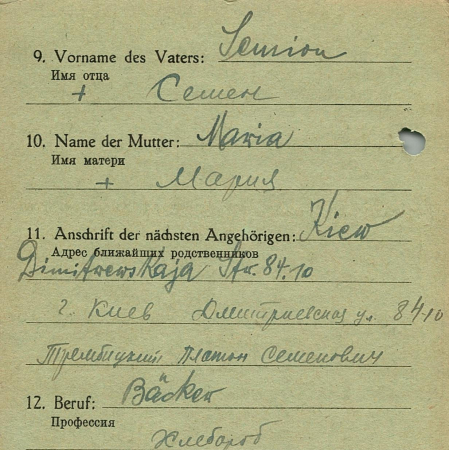 9. Vorname des Vaters: Semion
Имя отца
+ Семен
10. Name der Mutter: Maria
Имя матери
+ Мария
11. Anschrift der nächsten Angehörigen: Kiew
Адрес ближайших родственников
Dimitrewskaja Str. 84.10
г. Киев Дмитриевская ул. 84 10
Трембицкий Платон Семенович
12. Beruf: Bäcker
Профессия
Хлебороб